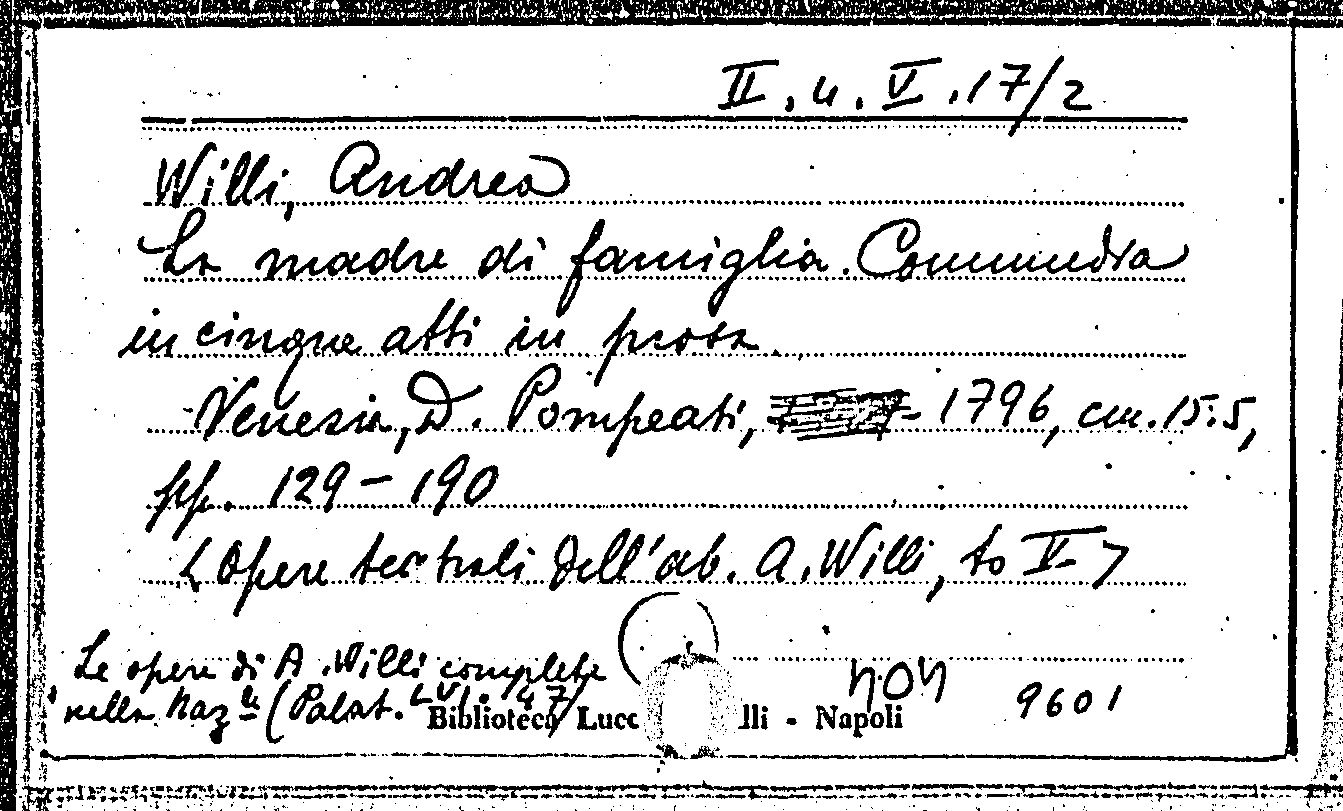 II. 4. V. 17/2
Willi, Andrea
La madre di famiglia. Commedia
in cinque atti in prosa.
Venezia, D. Pompeati, 1796, cm. 15.5,
pp. 129-190
< Opere teatrali dell'ab. A. Willi, to V >
Le opere di A. Willi complete
nella Naz.le (Palat. LVI. 47)
non
9601
Biblioteca Lucc lli - Napoli